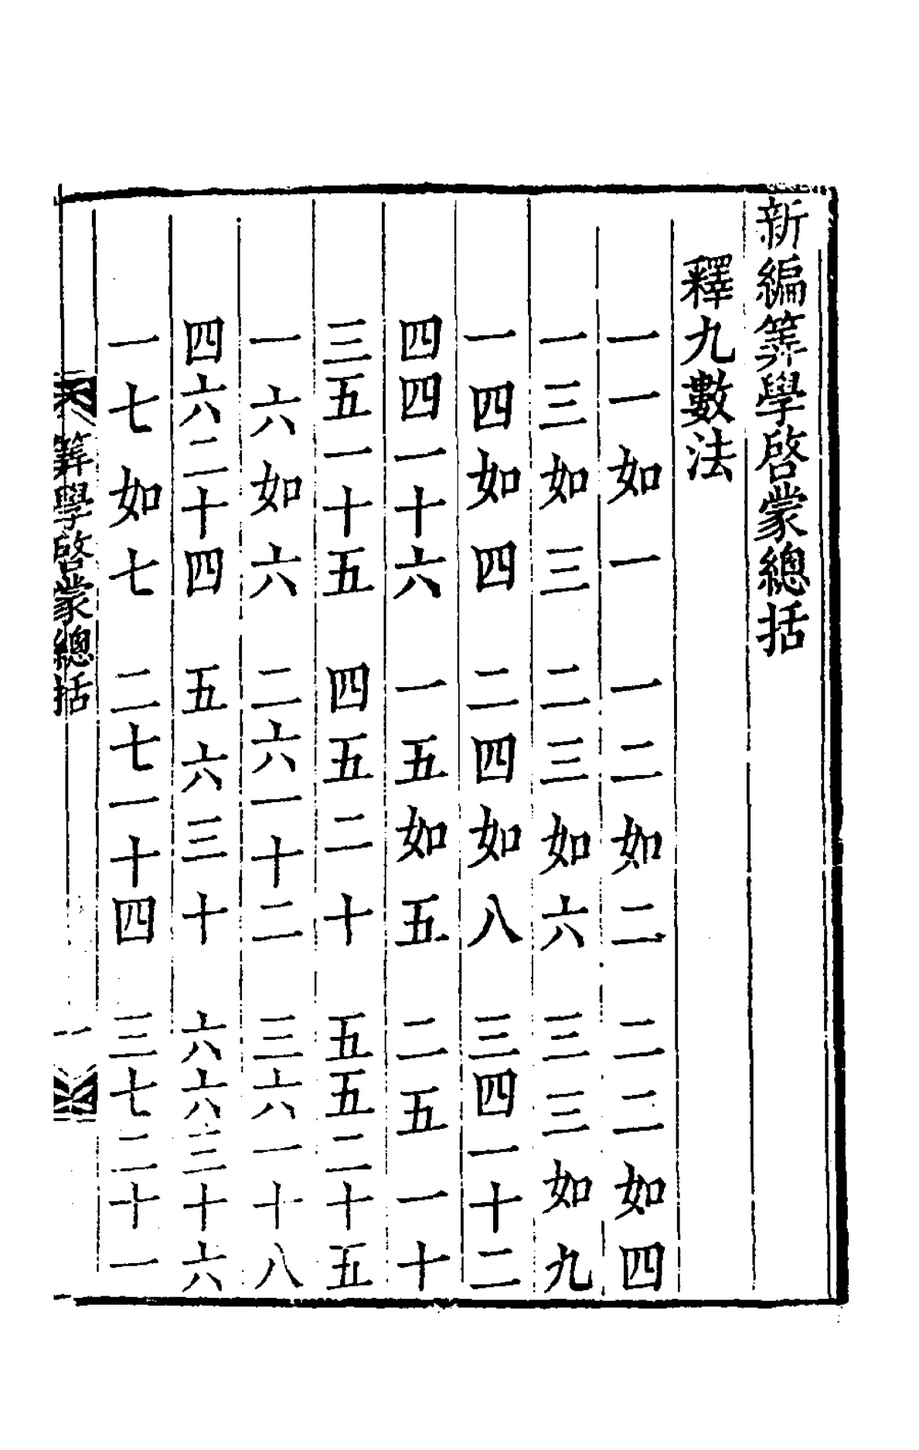 新編筭學啓蒙總括
釋九數法
一一如一 一二如二 二二如四
一三如三 二三如六 三三如九
一四如四 二四如八 三四一十二
四四一十六 一五如五 二五一十
三五一十五 四五二十 五五二十五
一六如六 二六一十二 三六一十八
四六二十四 五六三十 六六三十六
一七如七 二七一十四 三七二十一
筭學啓蒙總括 一